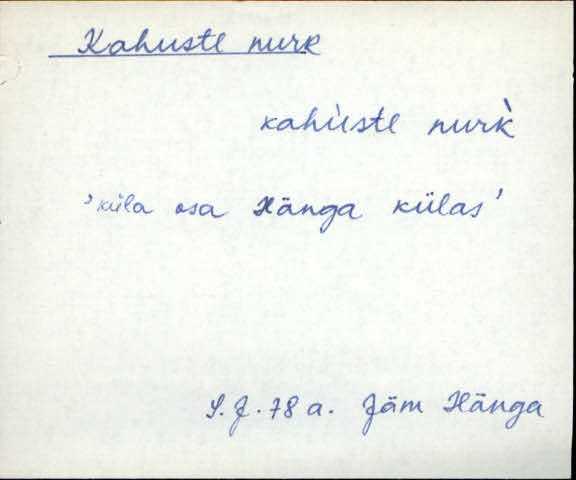 Kahuste nurk
kahùste nurk̀
'küla osa Hänga külas'
S.J. 78 a. Jäm Hänga